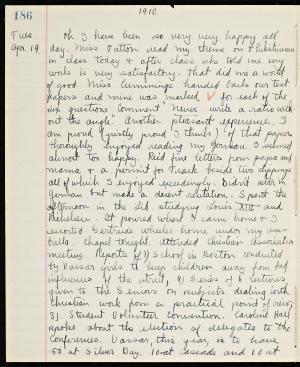 186
1910.
Tues
Apr. 19
Oh I have been so very very happy all
day. Miss Patton read my theme on Puritanism
in class today & after class she told me my
work is very satisfactory. That did me a world
of good. Miss Cummings handed back our test
papers and mine was marked ✓ for each of the
six questions Comment "Never write a ratio with
out the angle" Another pleasant experience. I
am proud (justly proud I think) of that paper
thoroughly enjoyed reading my German. I seemed
almost too happy. Rec'd fine letters from papa and
mama & a permit for Track beside two clippings
all of which I enjoyed exceedingly. Didn't star in
German but made a decent recitation. Spent the
afternoon in the Lib. studying Louis XIII and
Richelieu. It poured when I came home & I
escorted Gertrude Wheeler home under my um-
brella. Chapel tonight. Attended Christian Association
meeting. Reports of 1) School in Boston conducted
by Vassar girls to keep children away from bad
influences of the street, 2) Series of 6 lectures
given to the Seniors on subjects dealing with
Christian work from a practical point of view,
3) Student Volunteer Convention. Caroline Hall
spoke about the election of delegates to the
Conferences. Vassar, this year, is to have
50 at Silver Bay, 10 at Cascade and 10 at